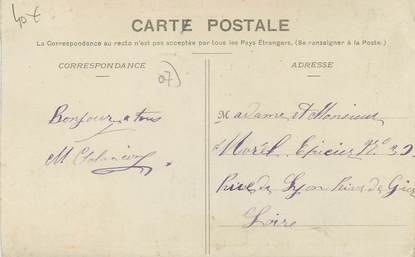 40 €
CARTE POSTALE
La Correspondance au recto n'est pas acceptée par tous les Pays Étrangers. (Se renseigner à la Poste.)
CORRESPONDANCE
07
ADRESSE
Bonjour a tous
M
Madame et Monsieur
Morel Epicier N° 32
Rive de Gier
Loire